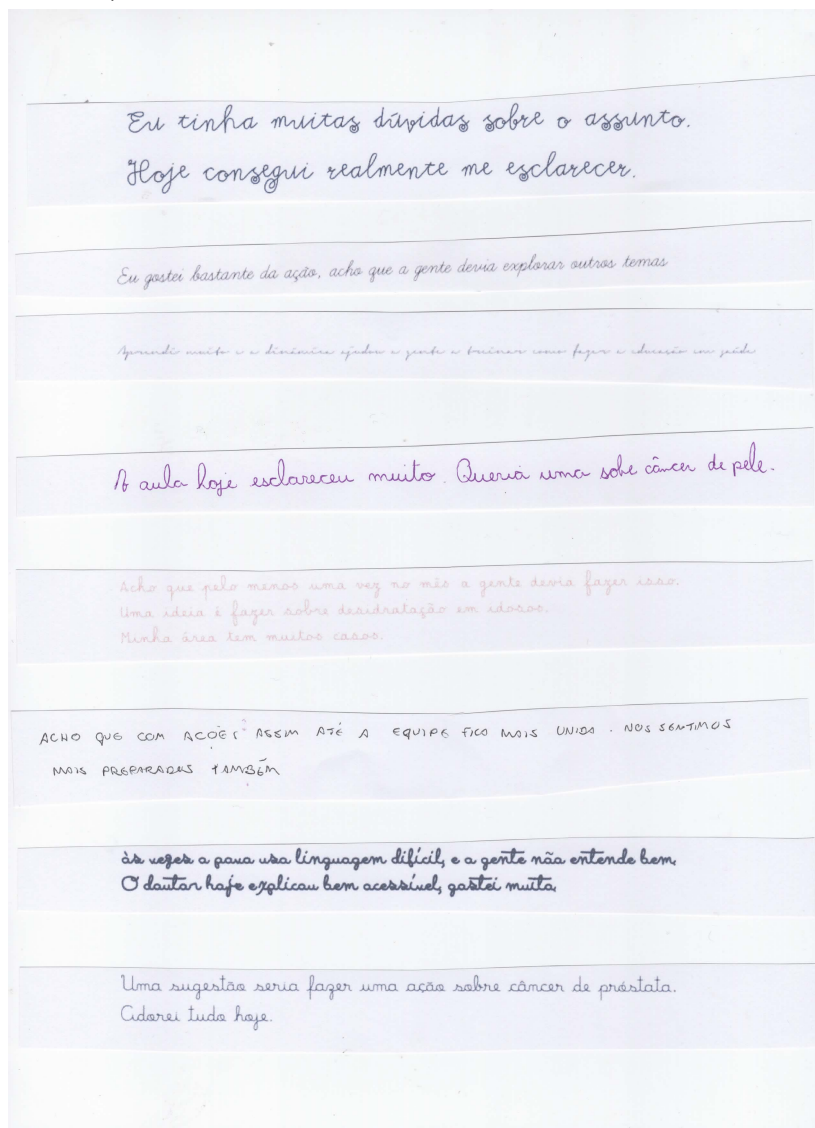 Eu tinha muitas dúvidas sobre o assunto.
Hoje consegui realmente me esclarecer.
Eu gostei bastante da ação, acho que a gente devia explorar outros temas
Aprendi muito e a dinâmica ajudou a gente a treinar como fazer a educação em saúde
A aula hoje esclareceu muito. Queria uma sobe câncer de pele.
Acho que pelo menos uma vez no mês a gente devia fazer isso.
Uma ideia é fazer sobre desidratação em idosos.
Minha área tem muitos casos.
ACHO QUE COM AÇÕES ASSIM ATÉ A EQUIPE FICA MAIS UNIDA. NOS SENTIMOS
MAIS PREPARADOS TAMBÉM
às vezes o povo usa linguagem difícil, e a gente não entende bem.
O doutor hoje explicou bem acessível, gostei muito.
Uma sugestão seria fazer uma ação sobre câncer de próstata.
Adorei tudo hoje.